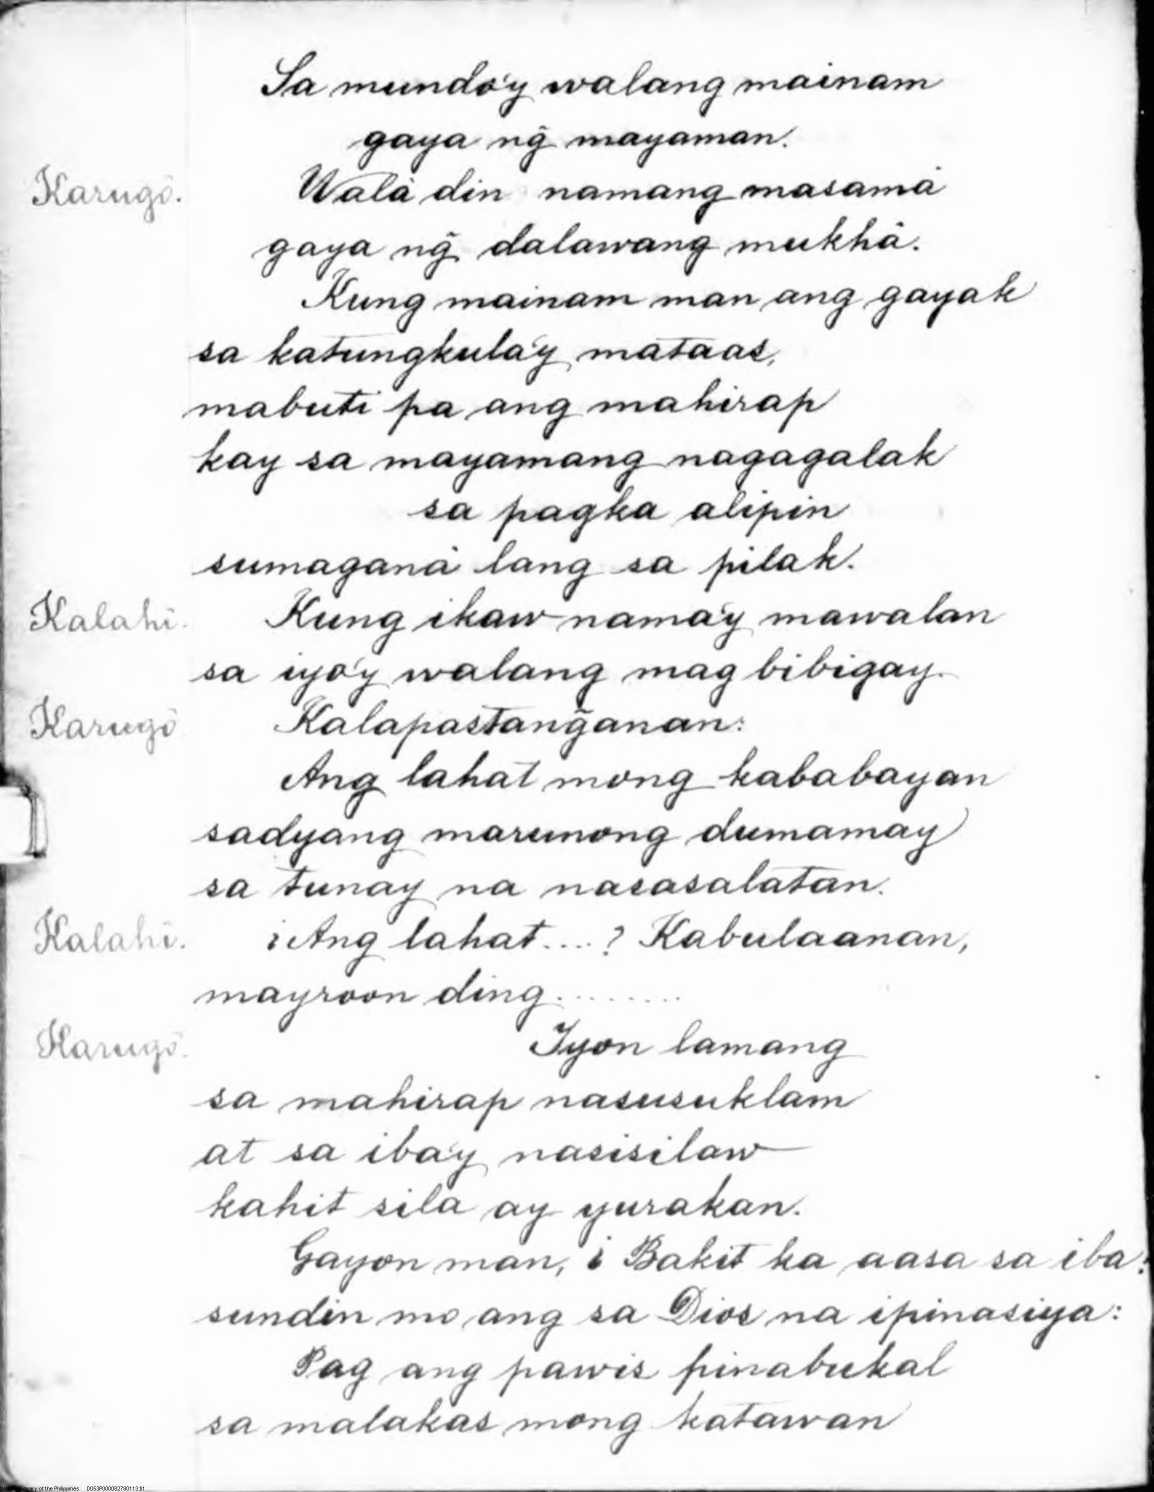 Sa mundo'y walang mainam
gaya ng̃ mayaman.
Karugô. Walâ din namang masamâ
gaya ng̃ dalawang mukhâ.
Kung mainam man ang gayak
sa katungkula'y mataas,
mabuti pa ang mahirap
kay sa mayamang nagagalak
sa pagka alipin
sumaganà lang sa pilak.
Kalahî. Kung ikaw nama'y mawalan
sa iyo'y walang mag bibigay.
Karugô Kalapastang̃anan:
Ang lahat mong kababayan
sadyang marunong dumamay
sa tunay na nasasalatan.
Kalahî. ¿Ang lahat....? Kabulaanan,
mayroon ding........
Karugô. Iyon lamang
sa mahirap nasusuklam
at sa iba'y nasisilaw
kahit sila ay yurakan.
Gayon man, ¿ Bakit ka aasa sa iba?
sundin mo ang sa Dios na ipinasiya:
Pag ang pawis pinabukal
sa malakas mong katawan